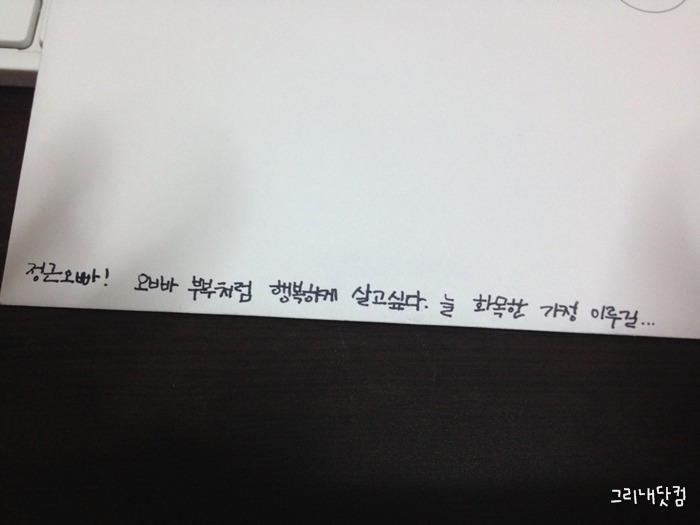 정근오빠! 오빠 부부처럼 행복하게 살고싶다. 늘 화목한 가정 이루길...
그리내닷컴